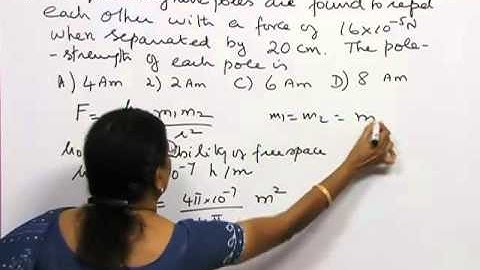 poles are found to repel
each other with a force of 16×10⁻⁵N
when separated by 20 cm. The pole-
-strength of each pole is
A) 4 Am 2) 2 Am C) 6 Am D) 8 Am
F = m₁ m₂ m₁ = m₂ = m
r²
of free space
10⁻⁷ h/m
= 4π×10⁻⁷ m²